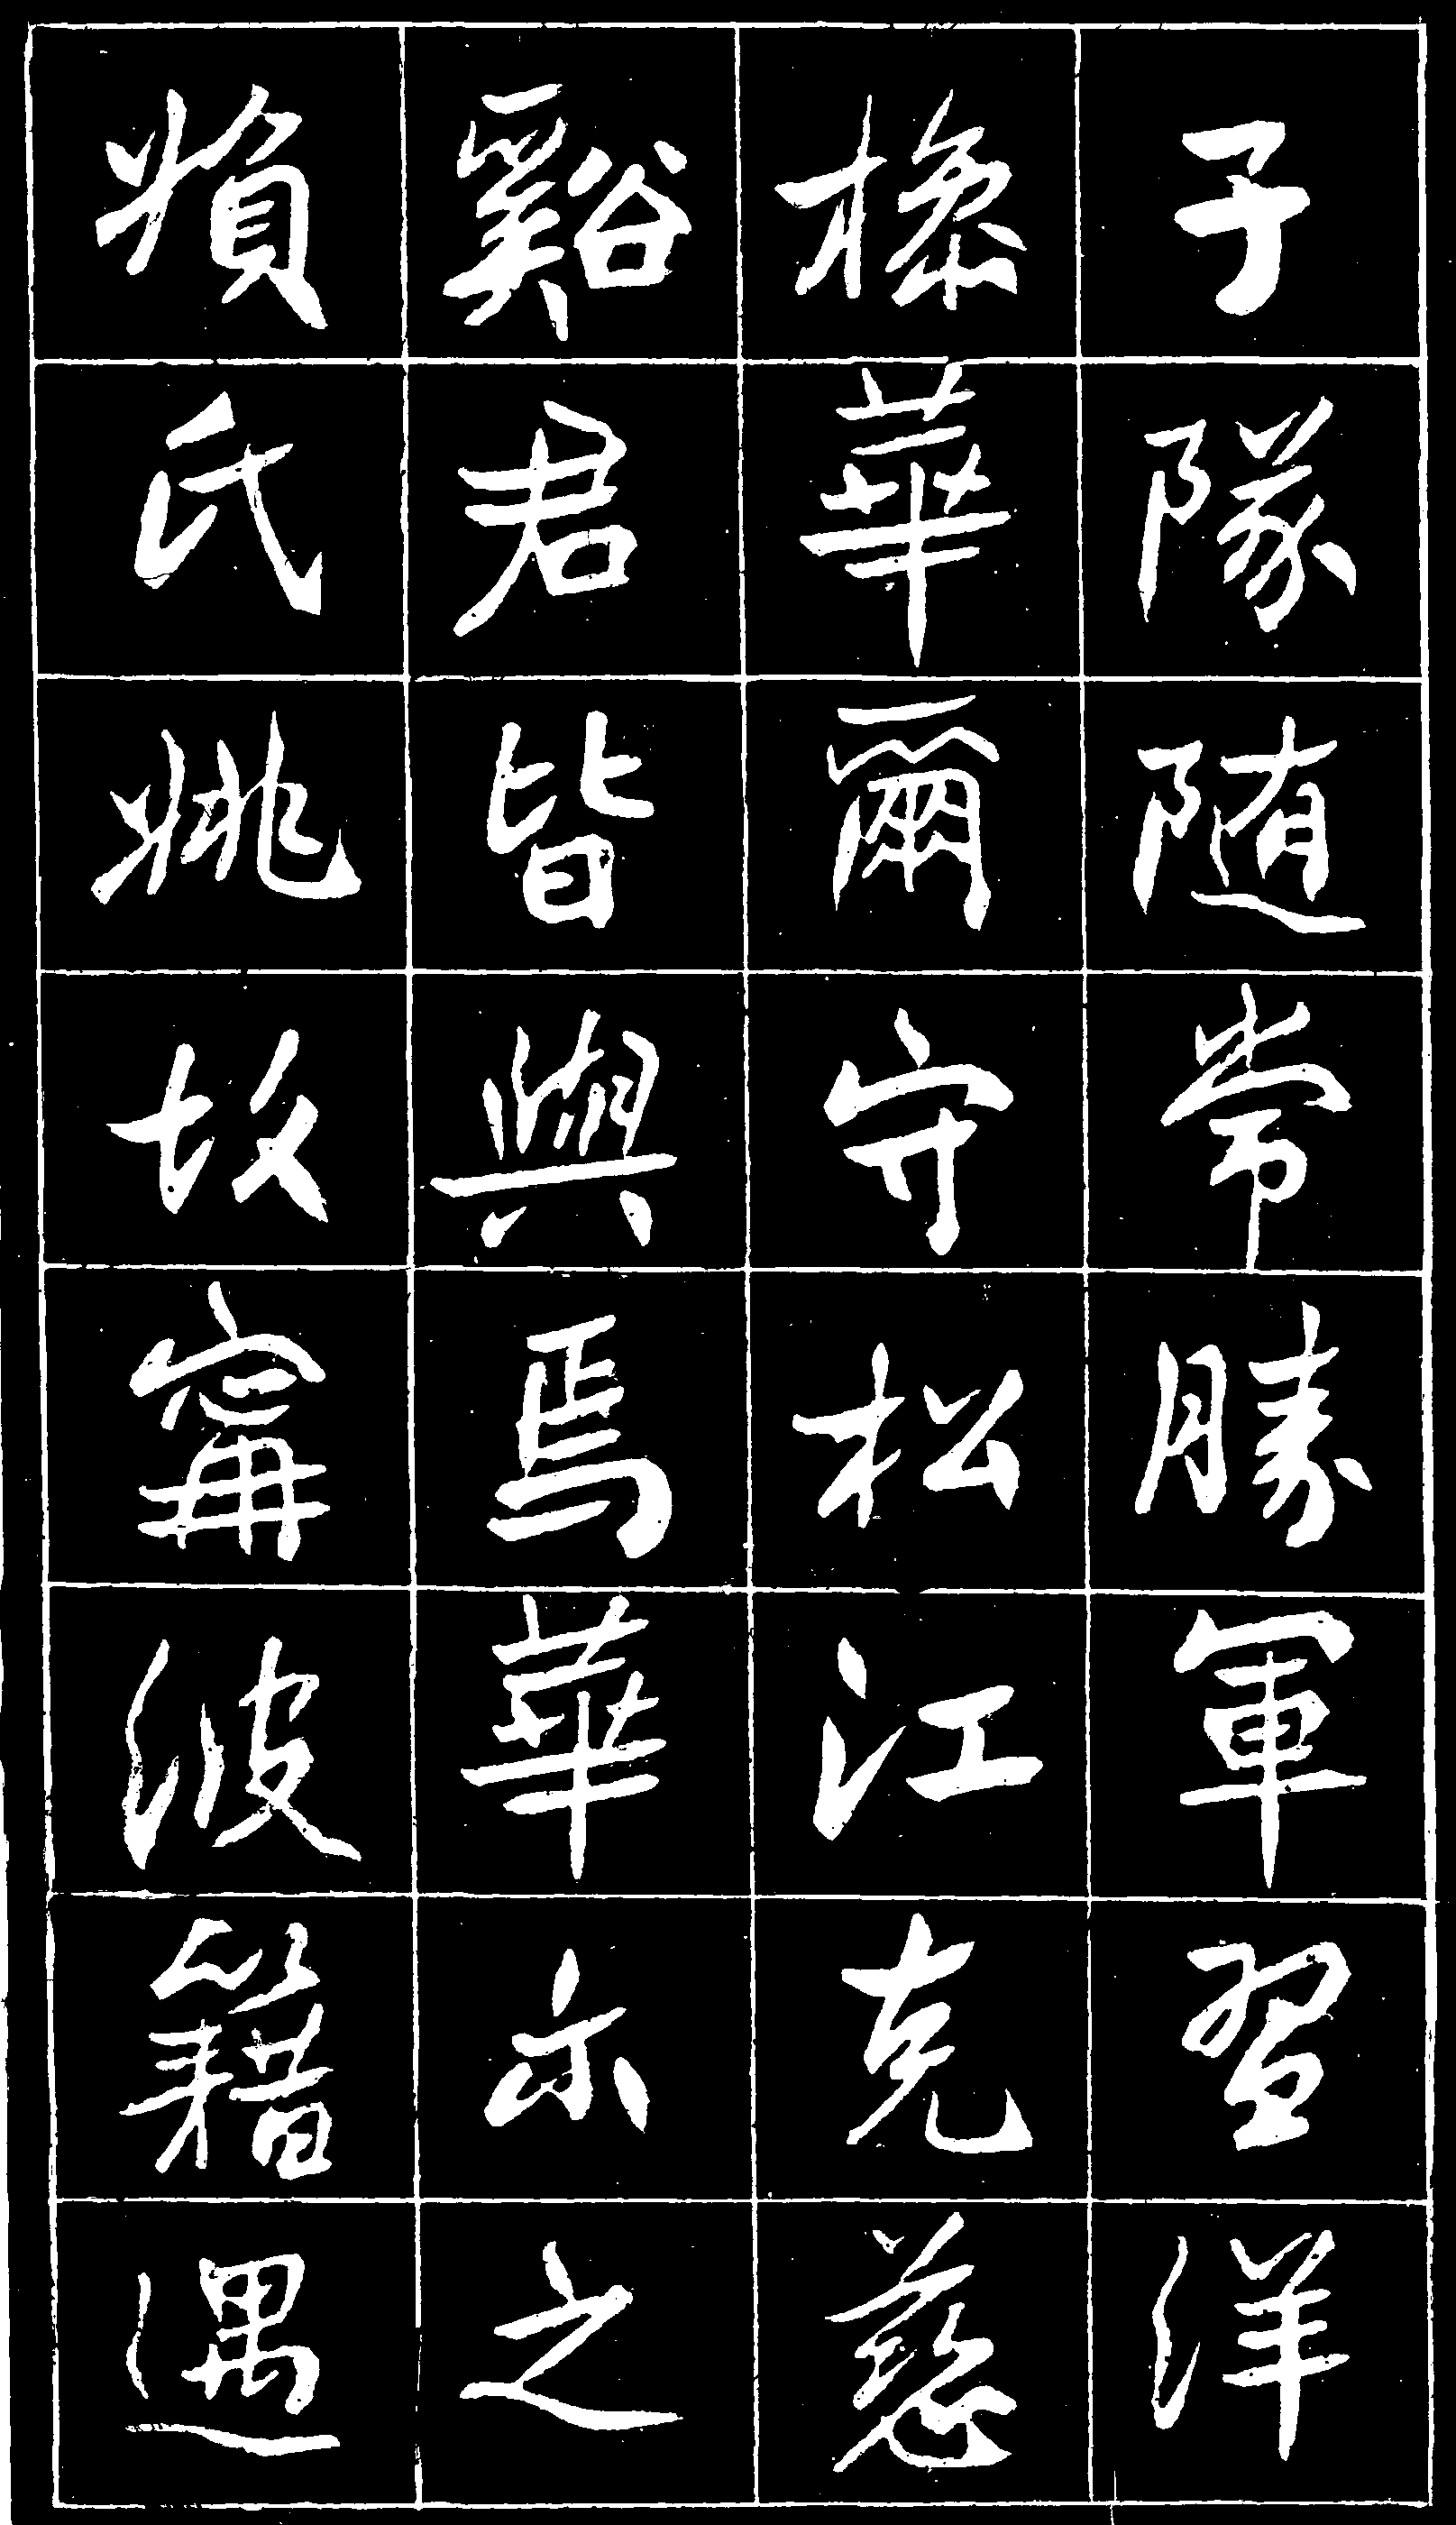 子隊随常勝軍習洋
操華爾守松江克慈
谿君皆與焉華尒之
媍氏姚故寧波籍遇